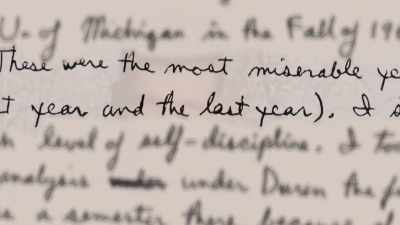 U. of Michigan in the Fall of 196
These were the most miserable ye
t year and the last year). I s
level of self-discipline. I too
analysis under Duren the f
a semester there because